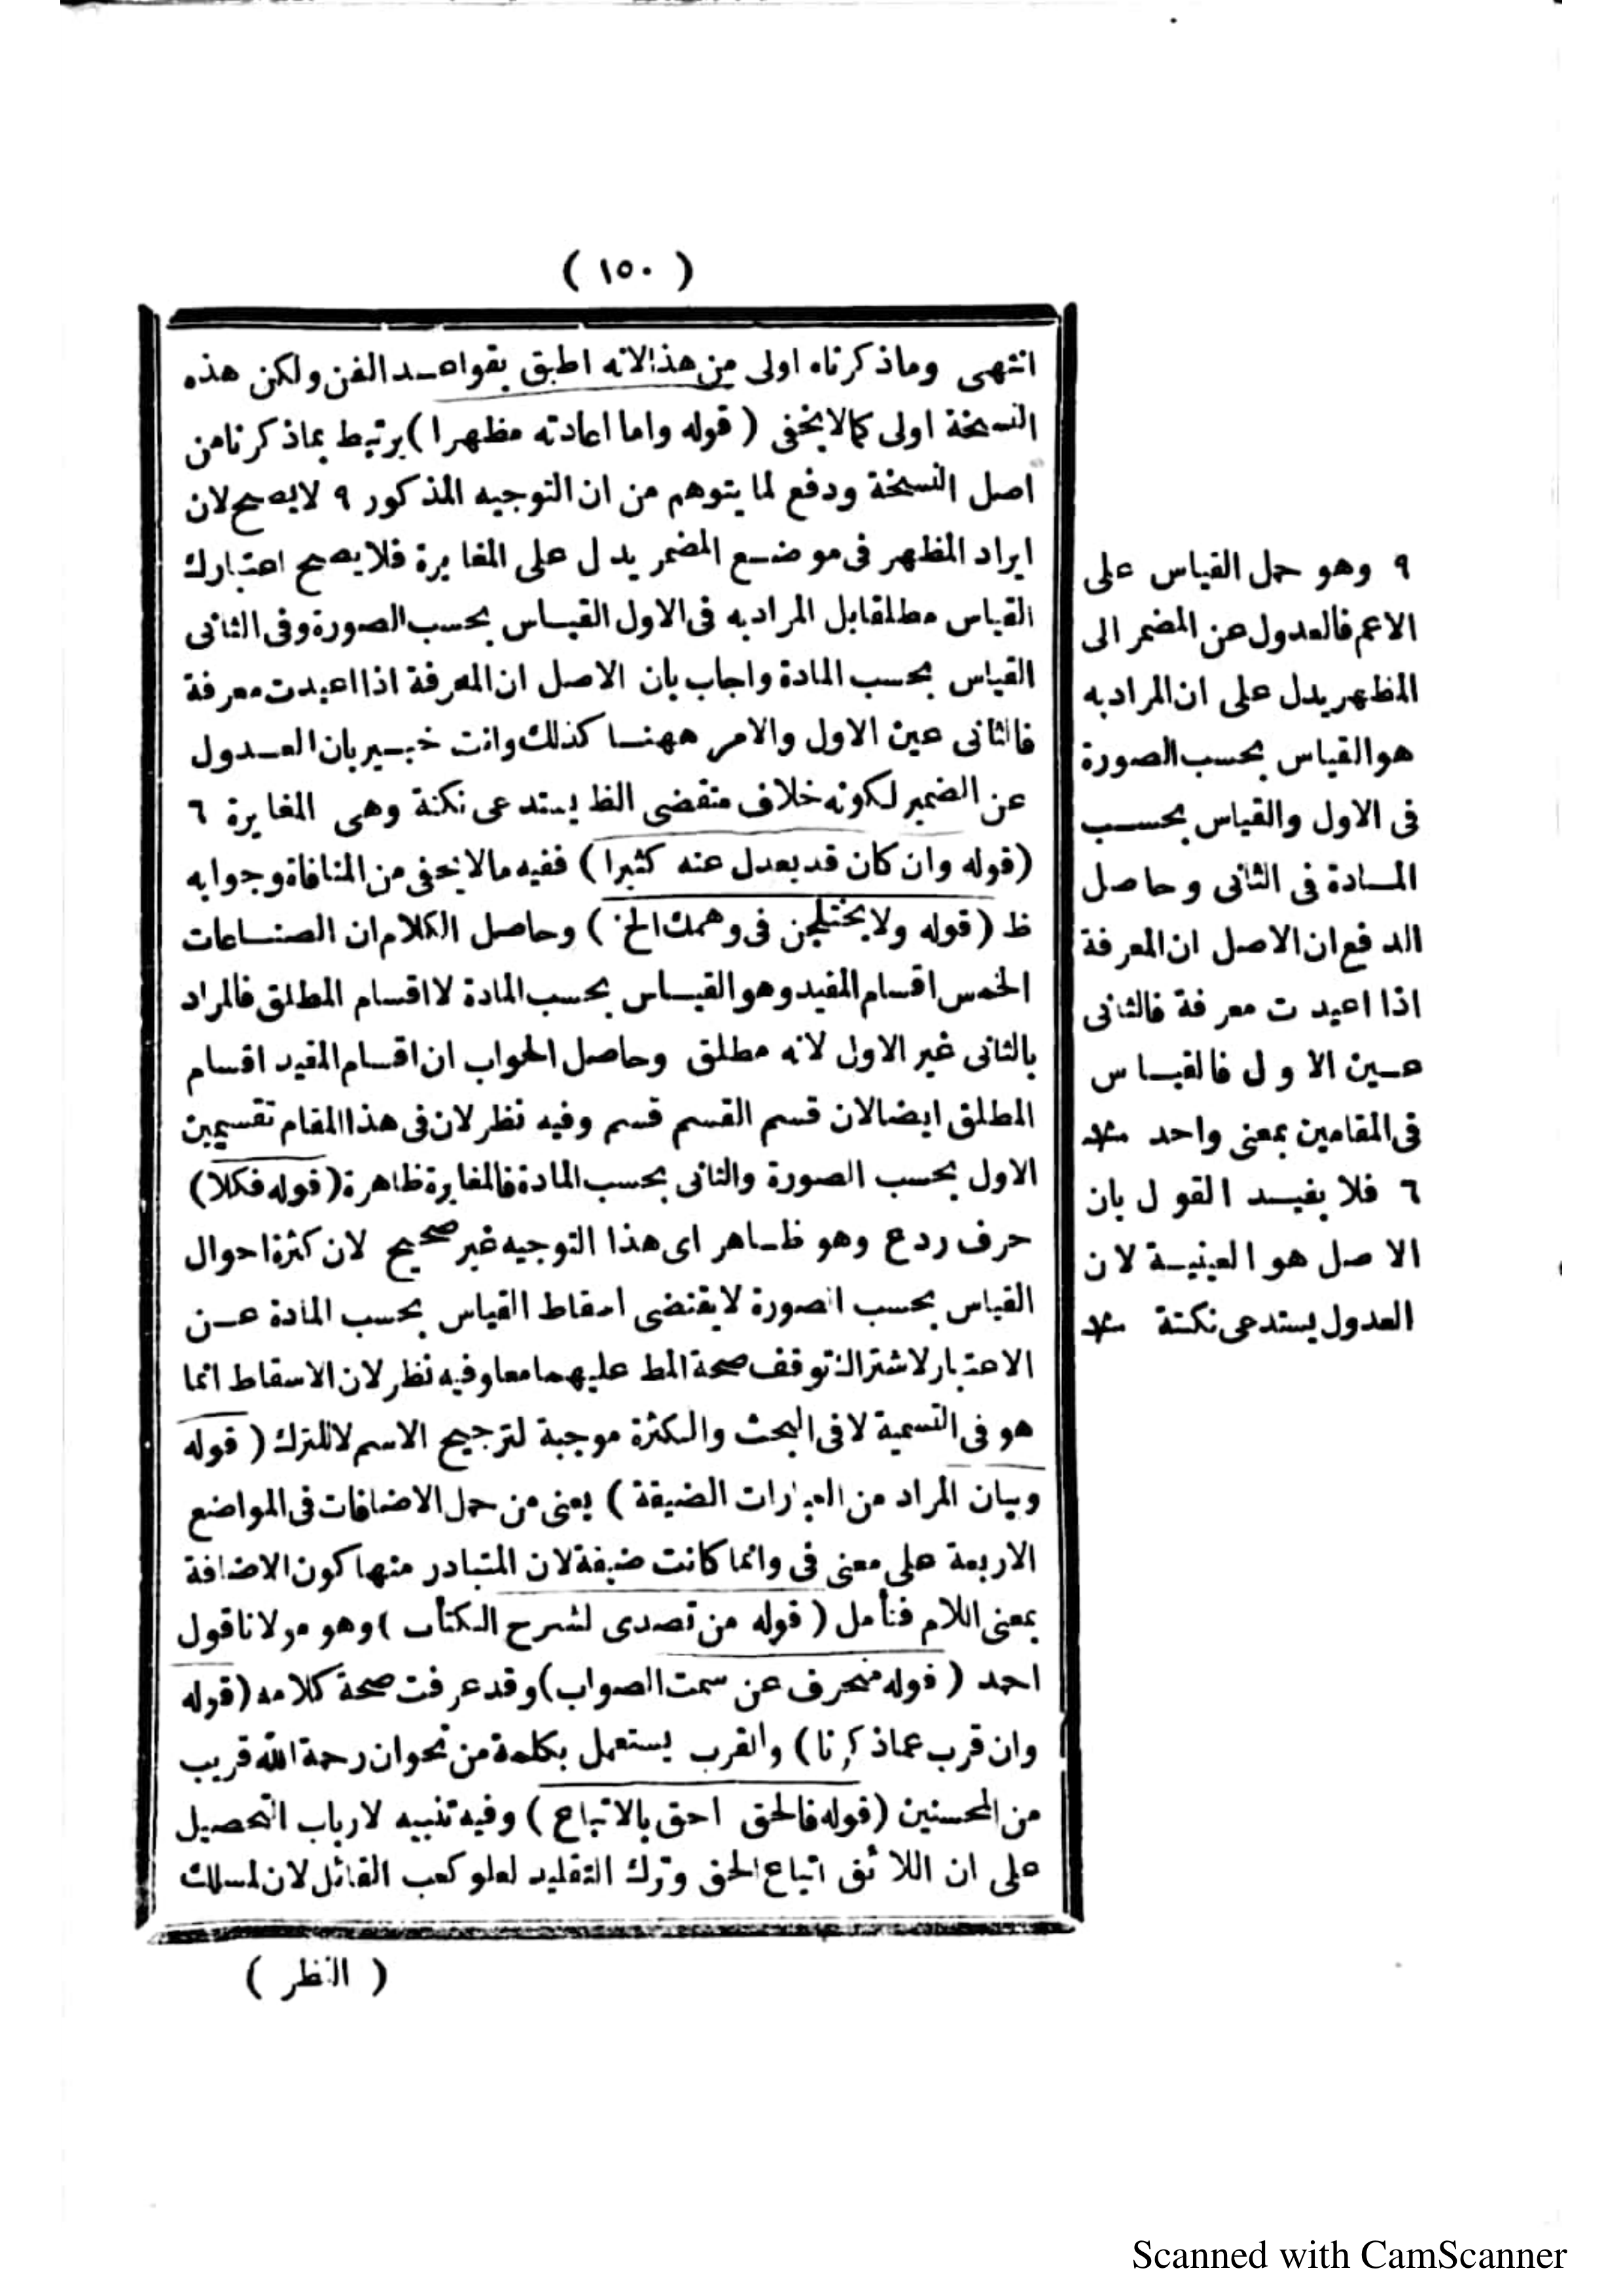 ( ١٥٠ )
انتهى وماذكرناه اولى من هذا لانه اطبق بقواعد الفن ولكن هذه
النسخة اولى كما لا يخفى ( قوله واما اعادته مظهرا ) يرتبط بما ذكرنا من
اصل النسخة ودفع لما يتوهم من ان التوجيه المذكور ٩ لا يصح لان
ايراد المظهر فى موضع المضمر يدل على المغايرة فلا يصح اعتبارك
القياس مطلقا بل المراد به فى الاول القياس بحسب الصورة وفى الثانى
القياس بحسب المادة واجاب بان الاصل ان المعرفة اذا اعيدت معرفة
فالثانى عين الاول والامر ههنا كذلك وانت خبير بان العدول
عن الضمير لكونه خلاف مقتضى الظ يستدعى نكتة وهى المغايرة ٦
( قوله وان كان قد يعدل عنه كثيرا ) ففيه ما لا يخفى من المنافاة وجوابه
ظ ( قوله ولا يختلجن فى وهمك الخ ) وحاصل الكلام ان الصناعات
الخمس اقسام المقيد وهو القياس بحسب المادة لا اقسام المطلق فالمراد
بالثانى غير الاول لانه مطلق وحاصل الجواب ان اقسام المقيد اقسام
المطلق ايضا لان قسم القسم قسم وفيه نظر لان فى هذا المقام تقسيمين
الاول بحسب الصورة والثانى بحسب المادة فالمغايرة ظاهرة ( قوله فكلا )
حرف ردع وهو ظاهر اى هذا التوجيه غير صحيح لان كثرة احوال
القياس بحسب الصورة لا يقتضى اسقاط القياس بحسب المادة عن
الاعتبار لاشتراك توقف صحة المط عليهما معا وفيه نظر لان الاسقاط انما
هو فى التسمية لا فى البحث والكثرة موجبة لترجيح الاسم لا للترك ( قوله
وبيان المراد من العبارات الضيقة ) يعنى من حمل الاضافات فى المواضع
الاربعة على معنى فى وانما كانت ضيقة لان المتبادر منها كون الاضافة
بمعنى اللام فتأمل ( قوله من تصدى لشرح الكتاب ) وهو مولانا قول
احمد ( قوله منحرف عن سمت الصواب ) وقد عرفت صحة كلامه ( قوله
وان قرب عما ذكرنا ) والقرب يستعمل بكلمة من نحو ان رحمة الله قريب
من المحسنين ( قوله فالحق احق بالاتباع ) وفيه تنبيه لارباب التحصيل
على ان اللائق اتباع الحق وترك التقليد لعلو كعب القائل لان لمسلك
( النظر )
٩ وهو حمل القياس على
الاعم فالعدول عن المضمر الى
المظهر يدل على ان المراد به
هو القياس بحسب الصورة
فى الاول والقياس بحسب
المادة فى الثانى وحاصل
الدفع ان الاصل ان المعرفة
اذا اعيدت معرفة فالثانى
عين الاول فالقياس
فى المقامين بمعنى واحد
٦ فلا يفيد القول بان
الاصل هو العينية لان
العدول يستدعى نكتة
Scanned with CamScanner